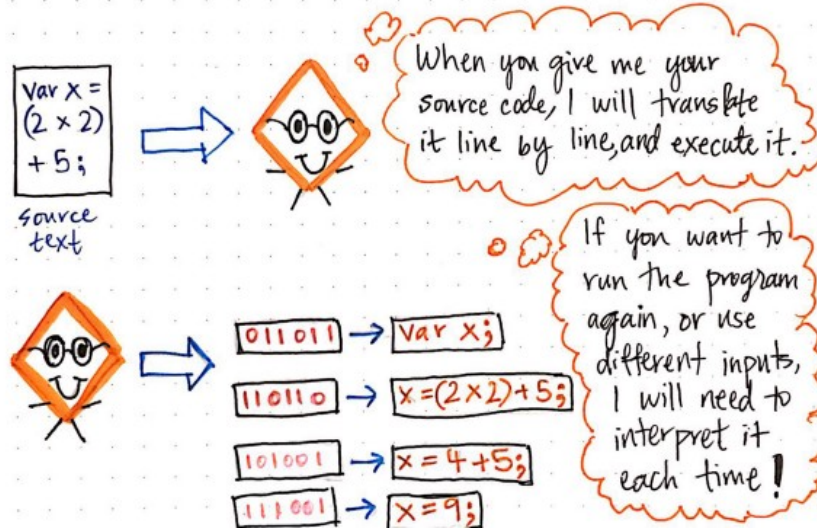 var x =
(2 x 2)
+ 5;
source
text
When you give me your
source code, I will translate
it line by line, and execute it.
If you want to
run the program
again, or use
different inputs,
I will need to
interpret it
each time!
011011 → var x;
110110 → x=(2x2)+5;
101001 → x = 4+5;
111001 → x = 9;